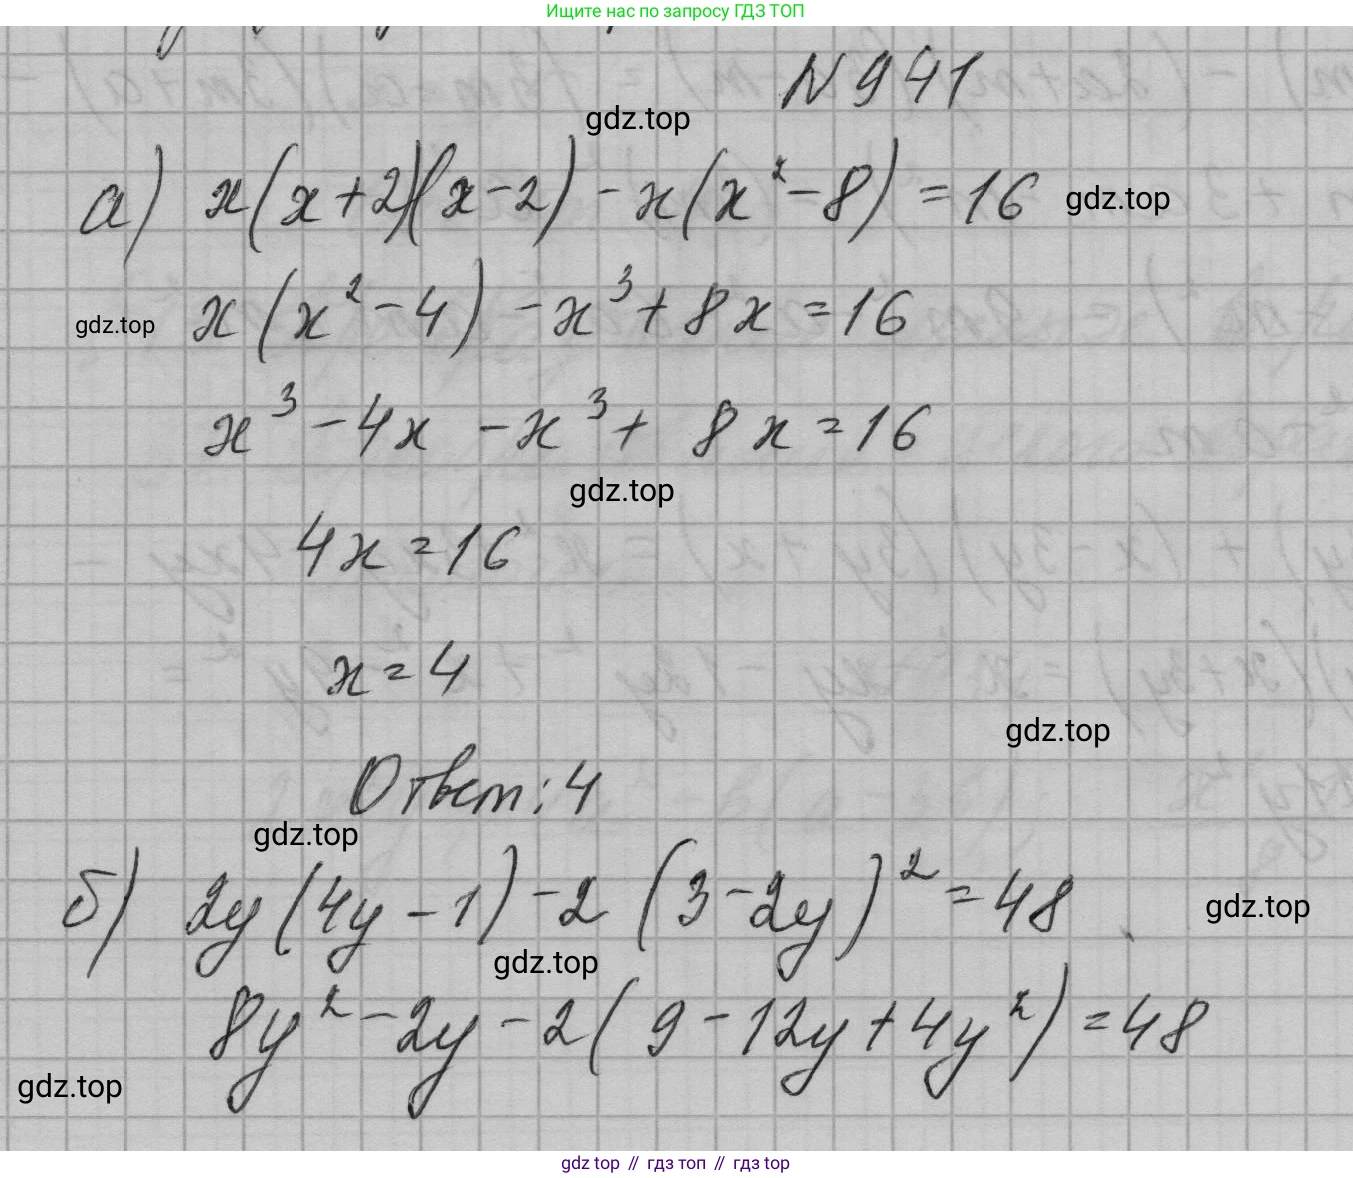 Ищите нас по запросу ГДЗ ТОП
N 941
gdz.top
а) x(x+2)(x-2) - x(x²-8) = 16
gdz.top
x(x²-4) - x³ + 8x = 16
gdz.top
x³ - 4x - x³ + 8x = 16
gdz.top
4x = 16
x = 4
gdz.top
Ответ: 4
gdz.top
б) 2y(4y-1) - 2(3-2y)² = 48
gdz.top
gdz.top
8y² - 2y - 2(9 - 12y + 4y²) = 48
gdz.top
gdz top // гдз топ // гдз top